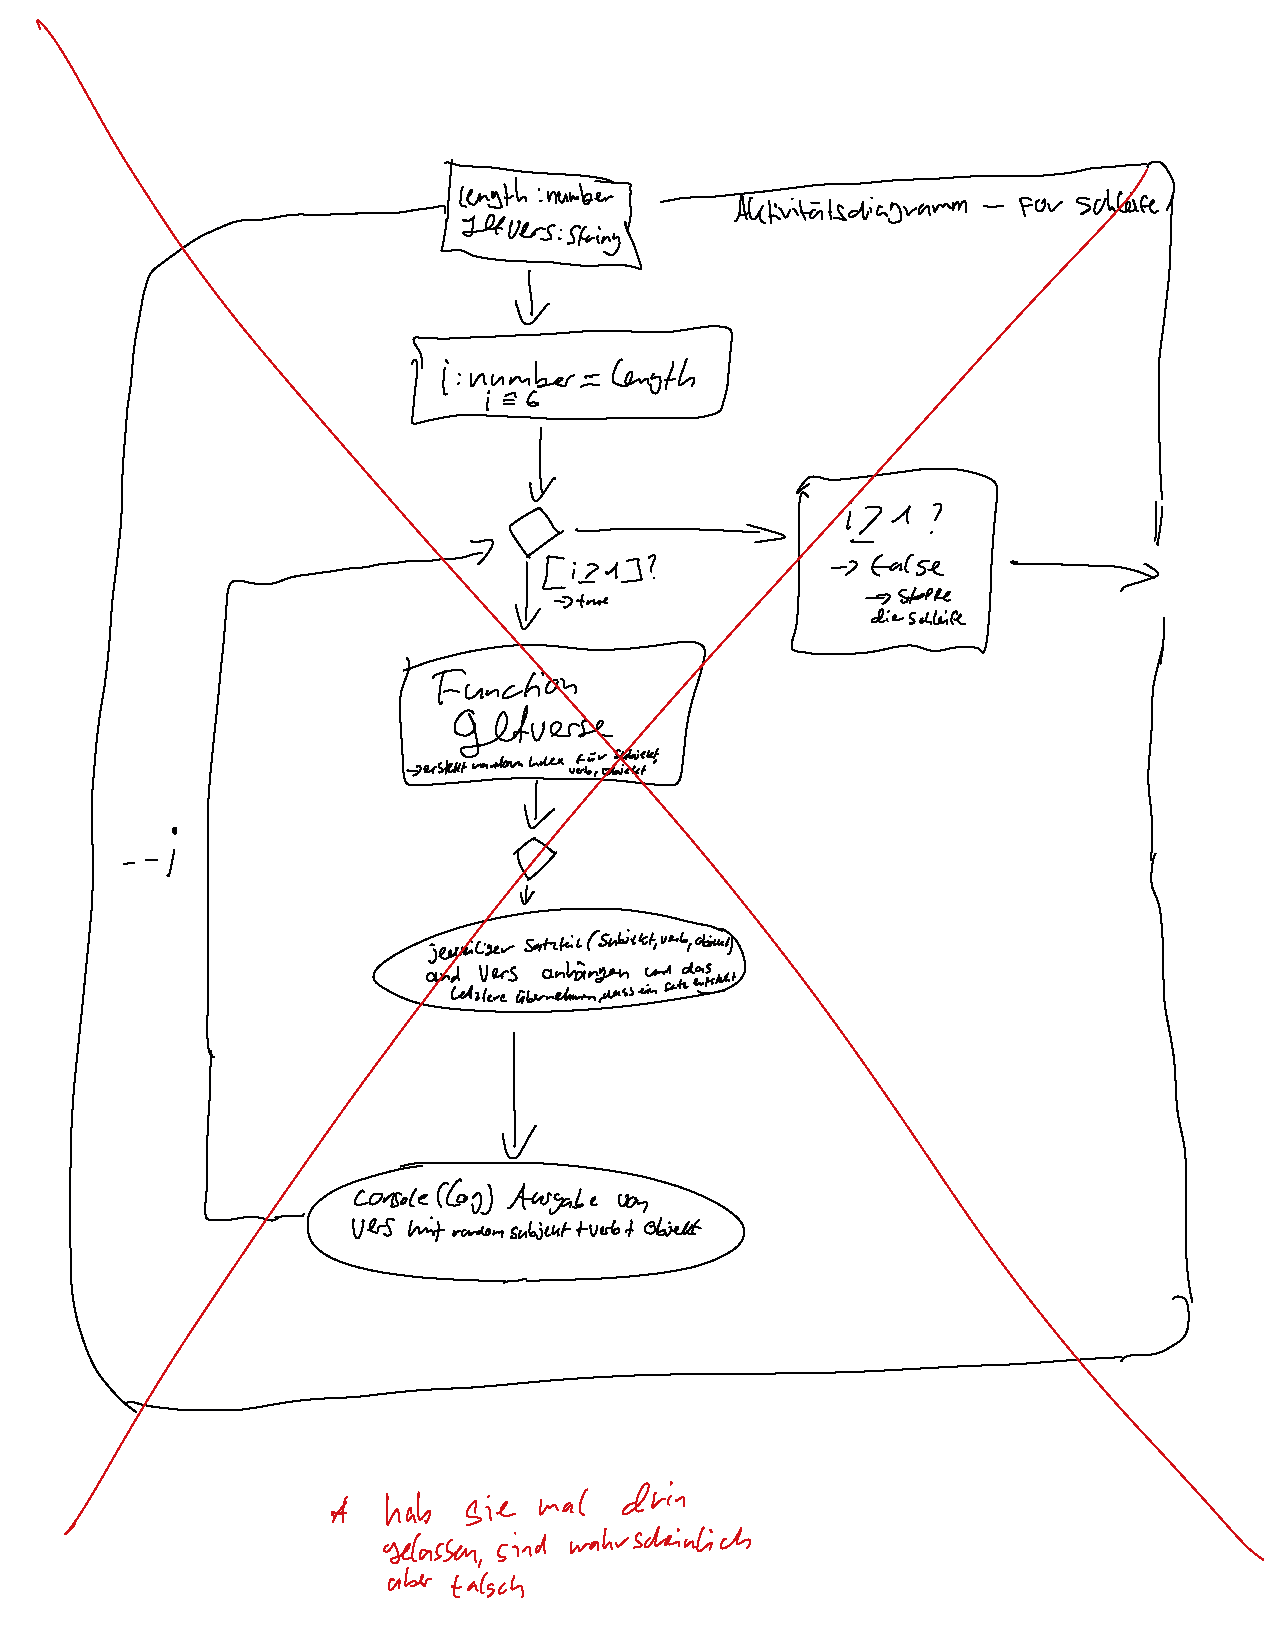 length : number
getVers : string
Aktivitätsdiagramm – For Schleife
i : number = length
i ≙ 6
[i ≥ 1]?
→ true
i ≥ 1 ?
→ false
→ stoppe
die Schleife
Function
getverse
→ erstellt random Index für Subjekt,
verb, Objekt
--i
jeweiliger Satzteil (Subjekt, verb, Objekt)
and Vers anhängen und das
letztere übernehmen, dass ein Satz entsteht
console(log) Ausgabe von
Vers mit random subjekt + verb + Objekt
hab sie mal drin
gelassen, sind wahrscheinlich
aber falsch